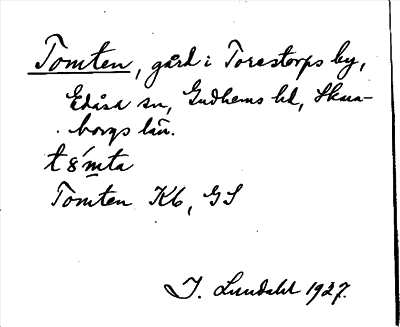 Tomten, gård i Torestorps by,
Edåsa sn, Gudhems hd, Skara-
borgs län.
Tomten Kb, GS
I. Lundahl 1927.